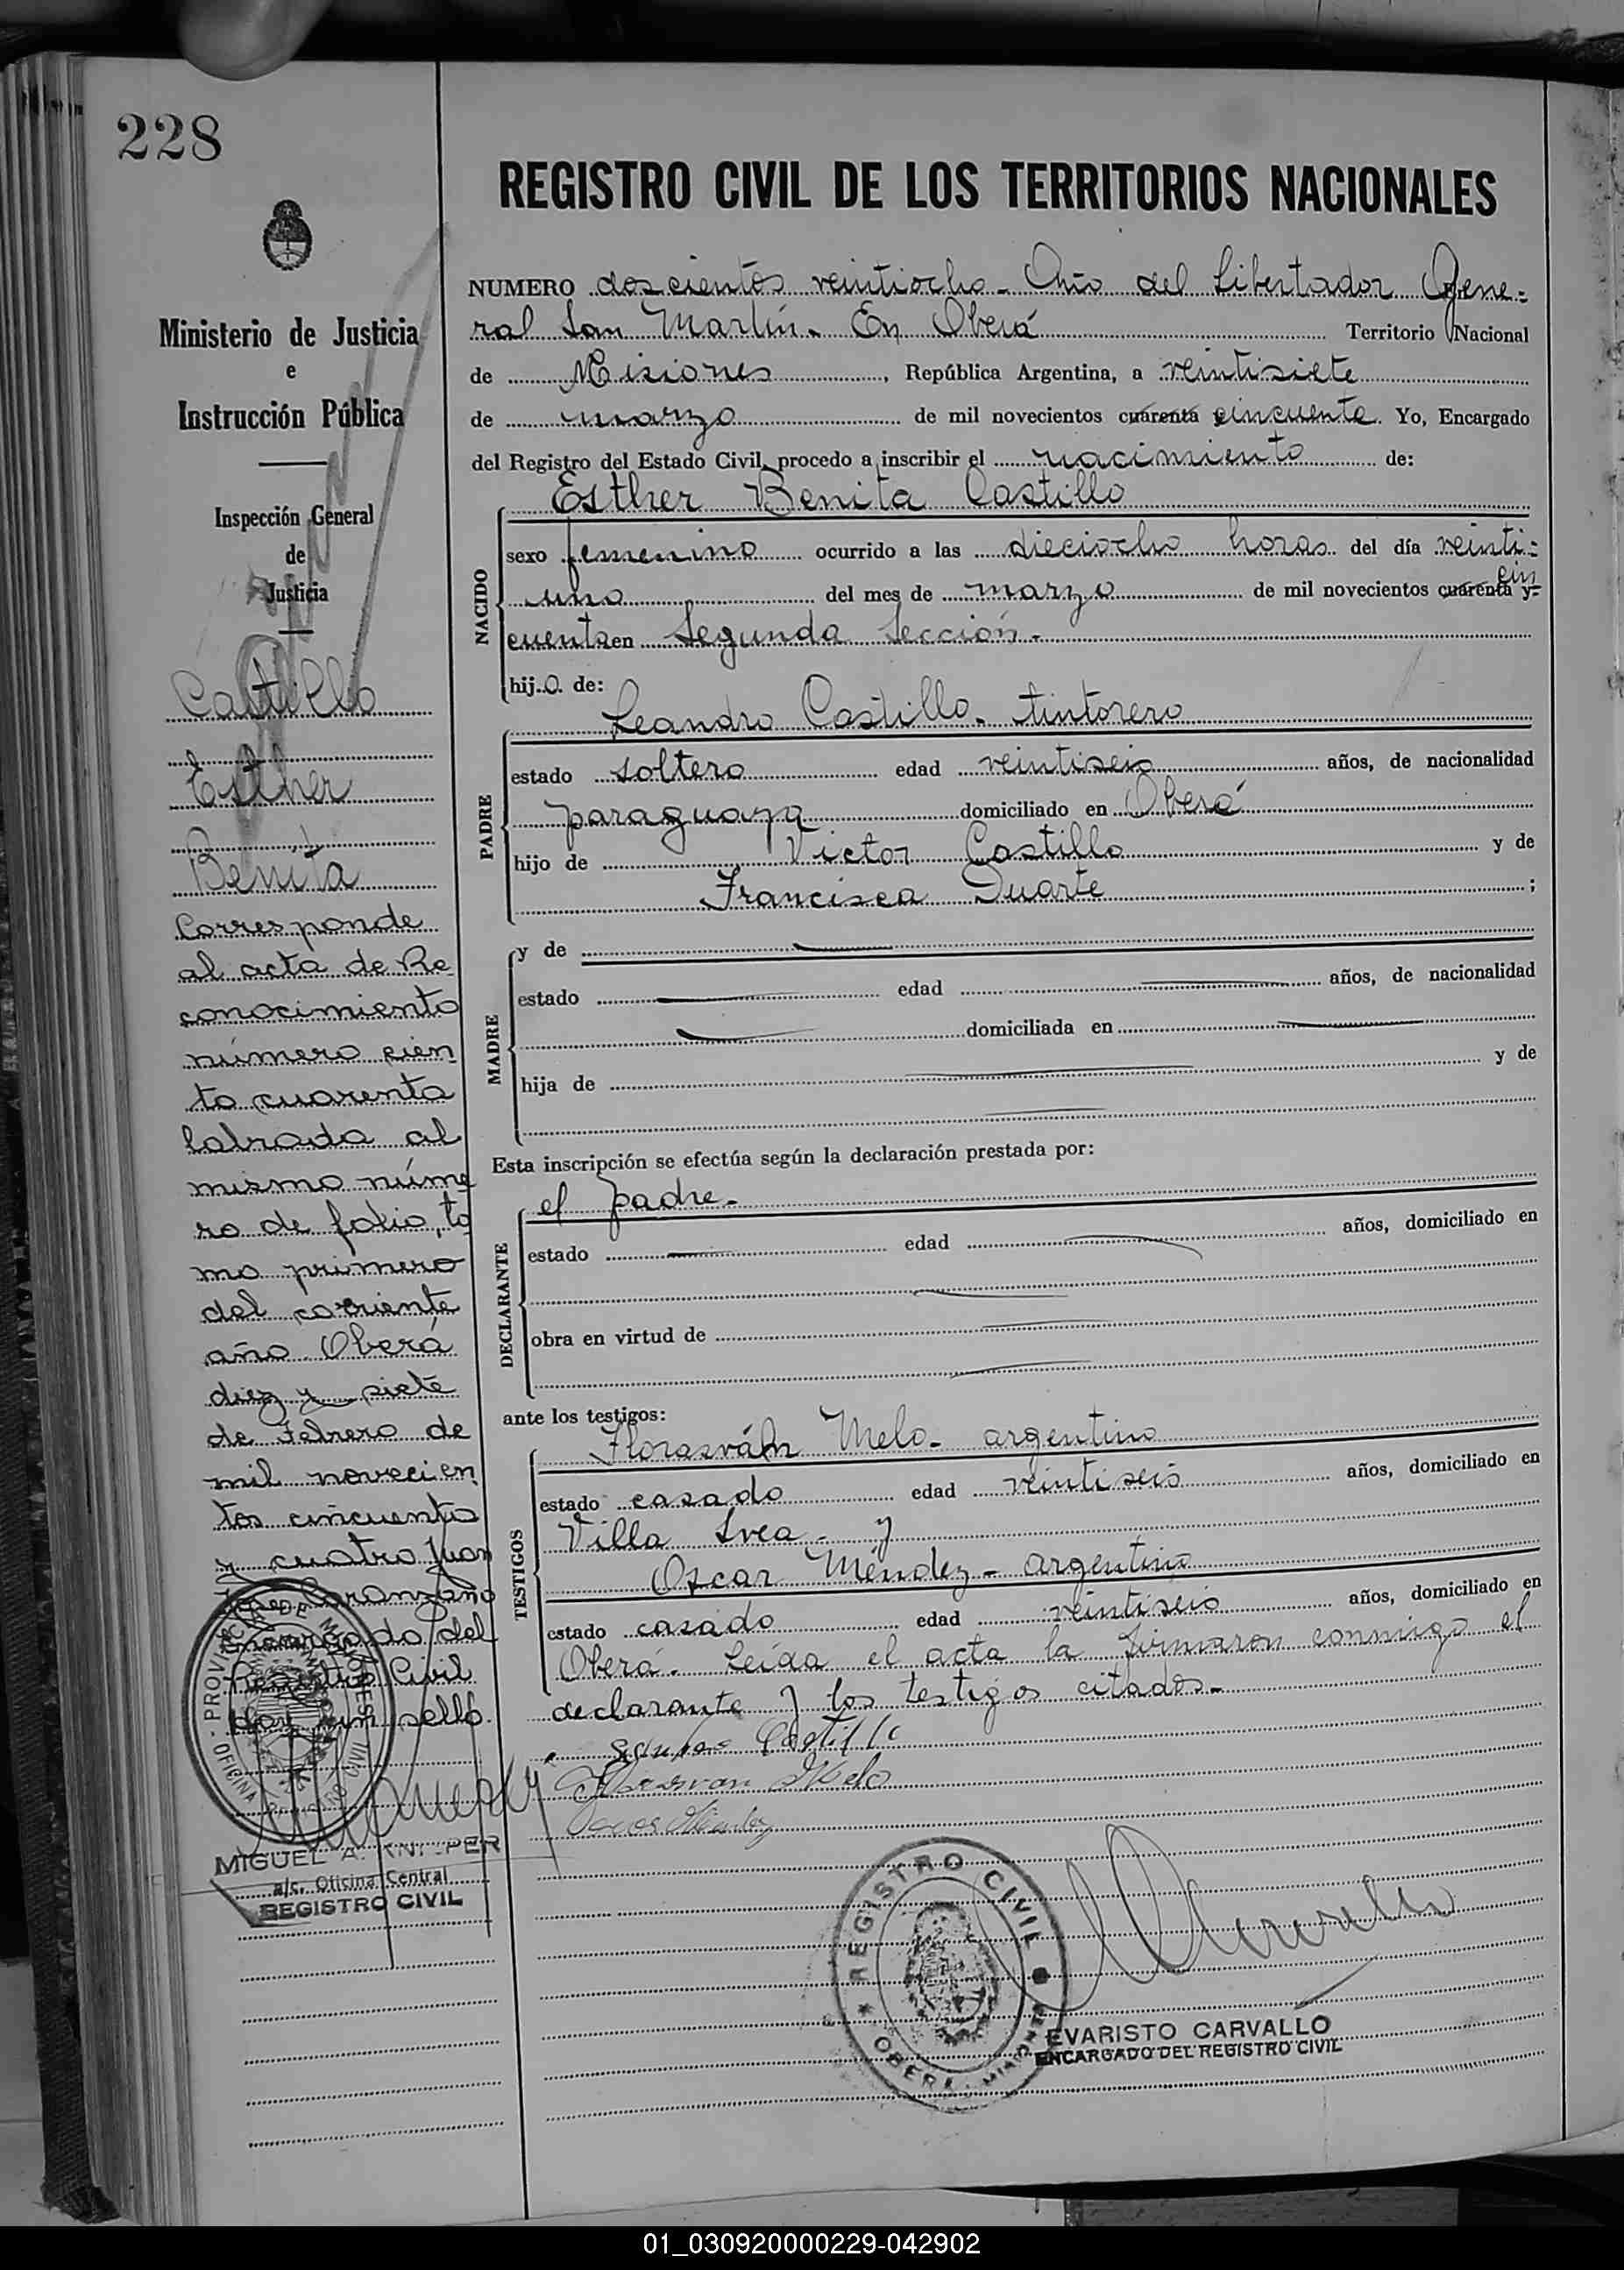 228
Ministerio de Justicia
e
Instrucción Pública
Inspección General
de
Justicia
Castillo
Esther
Benita
Corresponde
al acta de Re
conocimiento
número cien
to cuarenta
labrada al
mismo núme
ro de folio, to
mo primero
del corriente
año. Oberá
diez y siete
de Febrero de
mil novecien
tos cincuenta
y cuatro Juan
Encargado del
Registro Civil
Hay un sello.
PROVINCIA DE MISIONES
OFICINA
MIGUEL A.
a/c. Oficina Central
REGISTRO CIVIL
REGISTRO CIVIL DE LOS TERRITORIOS NACIONALES
NUMERO doscientos veintiocho - Año del Libertador Gene=
ral San Martín. En Oberá Territorio Nacional
de Misiones, República Argentina, a veintisiete
de marzo de mil novecientos cuarenta y cincuenta. Yo, Encargado
del Registro del Estado Civil, procedo a inscribir el nacimiento de:
Esther Benita Castillo
NACIDO
sexo femenino ocurrido a las dieciocho horas del día veinti=
uno del mes de marzo de mil novecientos cuarenta y cin=
cuenta en Segunda Sección.-
hij.o. de:
Leandro Castillo - tintorero
PADRE
estado soltero edad veintiseis años, de nacionalidad
paraguaya domiciliado en Oberá
hijo de Victor Castillo y de
Francisca Duarte ;
MADRE
y de
estado edad años, de nacionalidad
domiciliada en
hija de y de
Esta inscripción se efectúa según la declaración prestada por:
el padre.-
DECLARANTE
estado edad años, domiciliado en
obra en virtud de
ante los testigos:
TESTIGOS
Melo - argentino
estado casado edad veintiseis años, domiciliado en
Villa Svea - y
Oscar Méndez - argentino
estado casado edad veintiseis años, domiciliado en
Oberá. Leída el acta la firmaron conmigo el
declarante y los testigos citados.-
Castillo
Melo
REGISTRO CIVIL
OBERA
EVARISTO CARVALLO
ENCARGADO DEL REGISTRO CIVIL
01_030920000229-042902